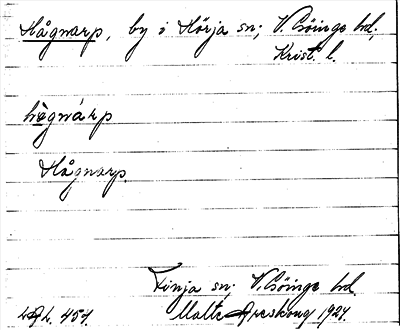 Hågnarp, by i Hörja sn; V. Göinge hd,
Krist. l.
hågnárp
Hågnarp
Finja sn; V. Göinge hd.
LAL. 454. Malte Areskoug 1924.